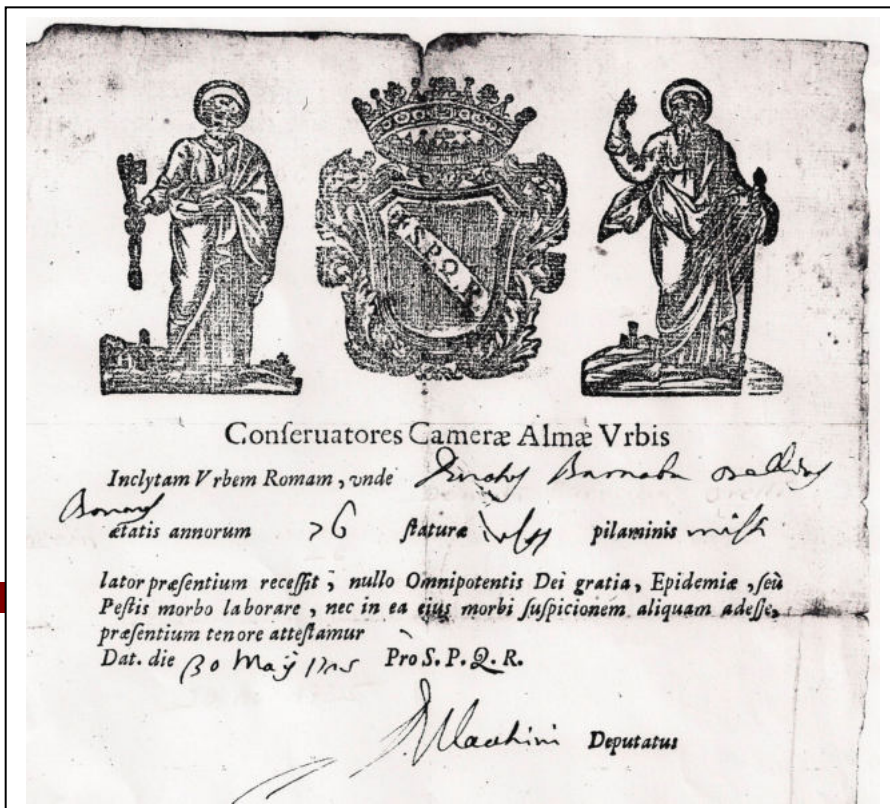 S.P.Q.R
Conſeruatores Cameræ Almæ Vrbis
Inclytam Vrbem Romam, vnde Barnaba
ætatis annorum 76 ſtaturæ pilaminis
lator præſentium receſſit, nullo Omnipotentis Dei gratia, Epidemiæ, ſeù
Peſtis morbo laborare, nec in ea eius morbi ſuſpicionem aliquam adeſſe,
præſentium tenore atteſtamur
Dat. die 30 Maÿ Pro S. P. Q. R.
Deputatus